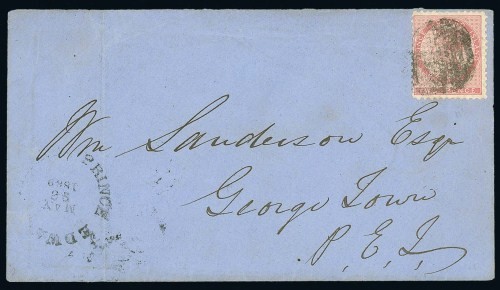 Wm Sanderson Esqr
George Town
P. E. I.
PRINCE EDW
MAY
1869